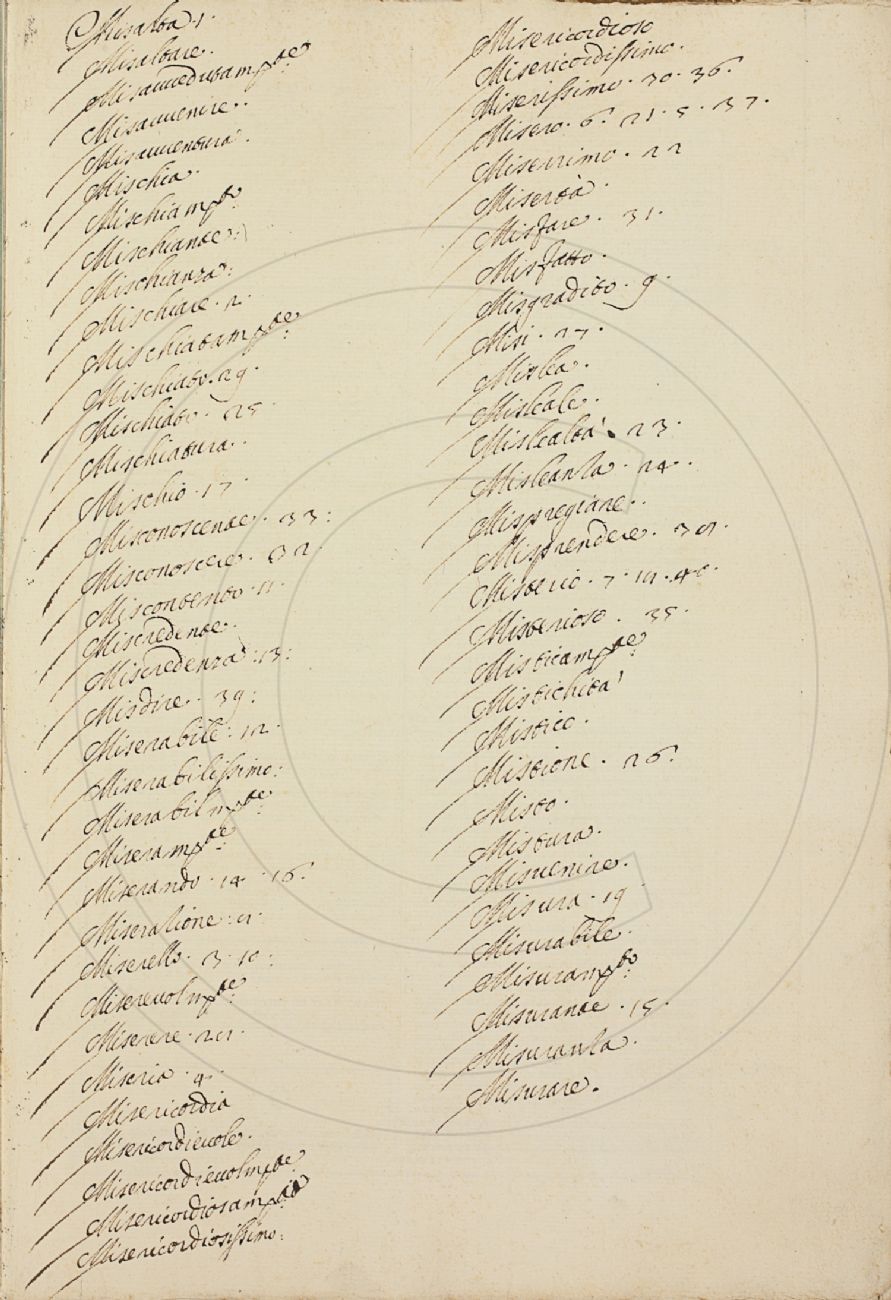 Misalta · 1 ·
Misaltare ·
Misavvedutam.te
Misavvenire ·
Misavventura ·
Mischia ·
Mischiam.to
Mischiante :
Mischianza :
Mischiare · 2 ·
Mischiatam.te
Mischiato · 29 ·
Mischiato · 25 ·
Mischiatura ·
Mischio · 17 ·
Misconoscente · 33 :
Misconoscere · 32 ·
Miscontento · 11 ·
Miscredente ·
Miscredenza · 13 :
Misdire · 39 :
Miserabile · 12 ·
Miserabilissimo :
Miserabilm.te
Miseram.te
Miserando · 14 · 16 ·
Miserazione ·
Miserello · 3 · 10 :
Miserevolm.te
Miserere ·
Miseria · 4 ·
Misericordia
Misericordievole ·
Misericordievolm.te
Misericordiosam.te
Misericordiosissimo :
Misericordioso
Misericordissimo ·
Miserissimo · 30 · 36 ·
Misero · 6 · 21 · 5 · 37 ·
Miserrimo · 22
Misertà ·
Misfare · 31 ·
Misfatto ·
Misgradito · 9 ·
Misi · 27 ·
Mislea ·
Misleale ·
Mislealtà · 23 ·
Misleanza · 24 ·
Mispregiare ·
Misprendere ·
Misterio · 7 ·
Misterioso · 35 ·
Misticam.te
Mistichità
Mistico ·
Mistione · 26 ·
Misto ·
Mistura ·
Misvenire ·
Misura · 19
Misurabile ·
Misuram.to
Misurante · 15 ·
Misuranza ·
Misurare ·